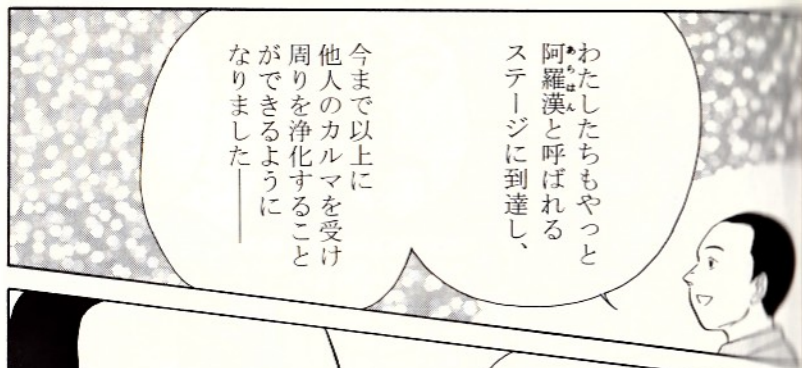 わたしたちもやっと
阿羅漢と呼ばれる
あらはん
ステージに到達し、
今まで以上に
他人のカルマを受け
周りを浄化すること
ができるように
なりました――